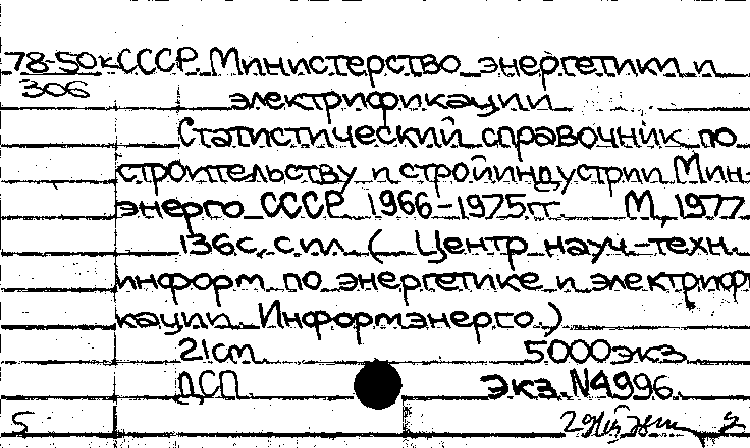 78-50к СССР. Министерство энергетики и
306
электрификации
Статистический справочник по
строительству и стройиндустрии Мин-
энерго СССР 1966-1975гг. М, 1977
136с, с ил. ( Центр науч.-техн.
информ по энергетике и электрифи
кации Информэнерго.)
21см 5000экз
ДСП Экз. N4996.
5